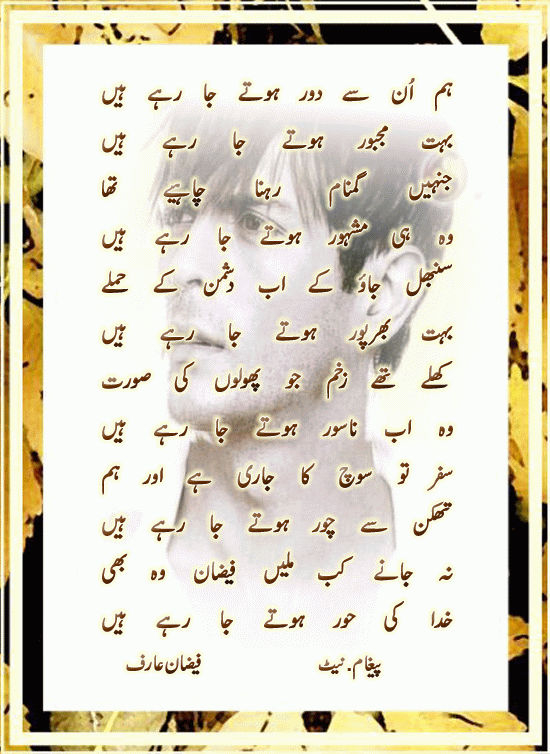 ہم اُن سے دور ہوتے جا رہے ہیں
بہت مجبور ہوتے جا رہے ہیں
جنہیں گمنام رہنا چاہیے تھا
وہ ہی مشہور ہوتے جا رہے ہیں
سنبھل جاؤ کے اب دشمن کے حملے
بہت بھرپور ہوتے جا رہے ہیں
کھلے تھے زخم جو پھولوں کی صورت
وہ اب ناسور ہوتے جا رہے ہیں
سفر تو سوچ کا جاری ہے اور ہم
تھکن سے چور ہوتے جا رہے ہیں
نہ جانے کب ملیں فیضان وہ بھی
خدا کی حور ہوتے جا رہے ہیں
پیغام.نیٹ فیضان عارف